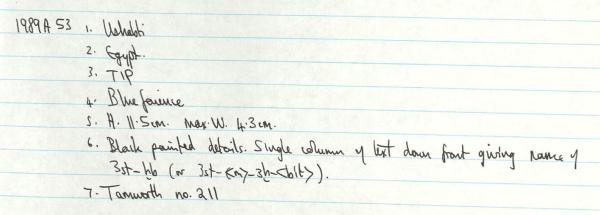 1989A53 1. Ushabti
2. Egypt.
3. TIP
4. Blue faience
5. H. 11.5cm. Max.W. 4.3cm.
6. Black painted details. Single column of text down front giving name of
3st-hb (or 3st-<m>-3h-<bit>).
7. Tamworth no. 211